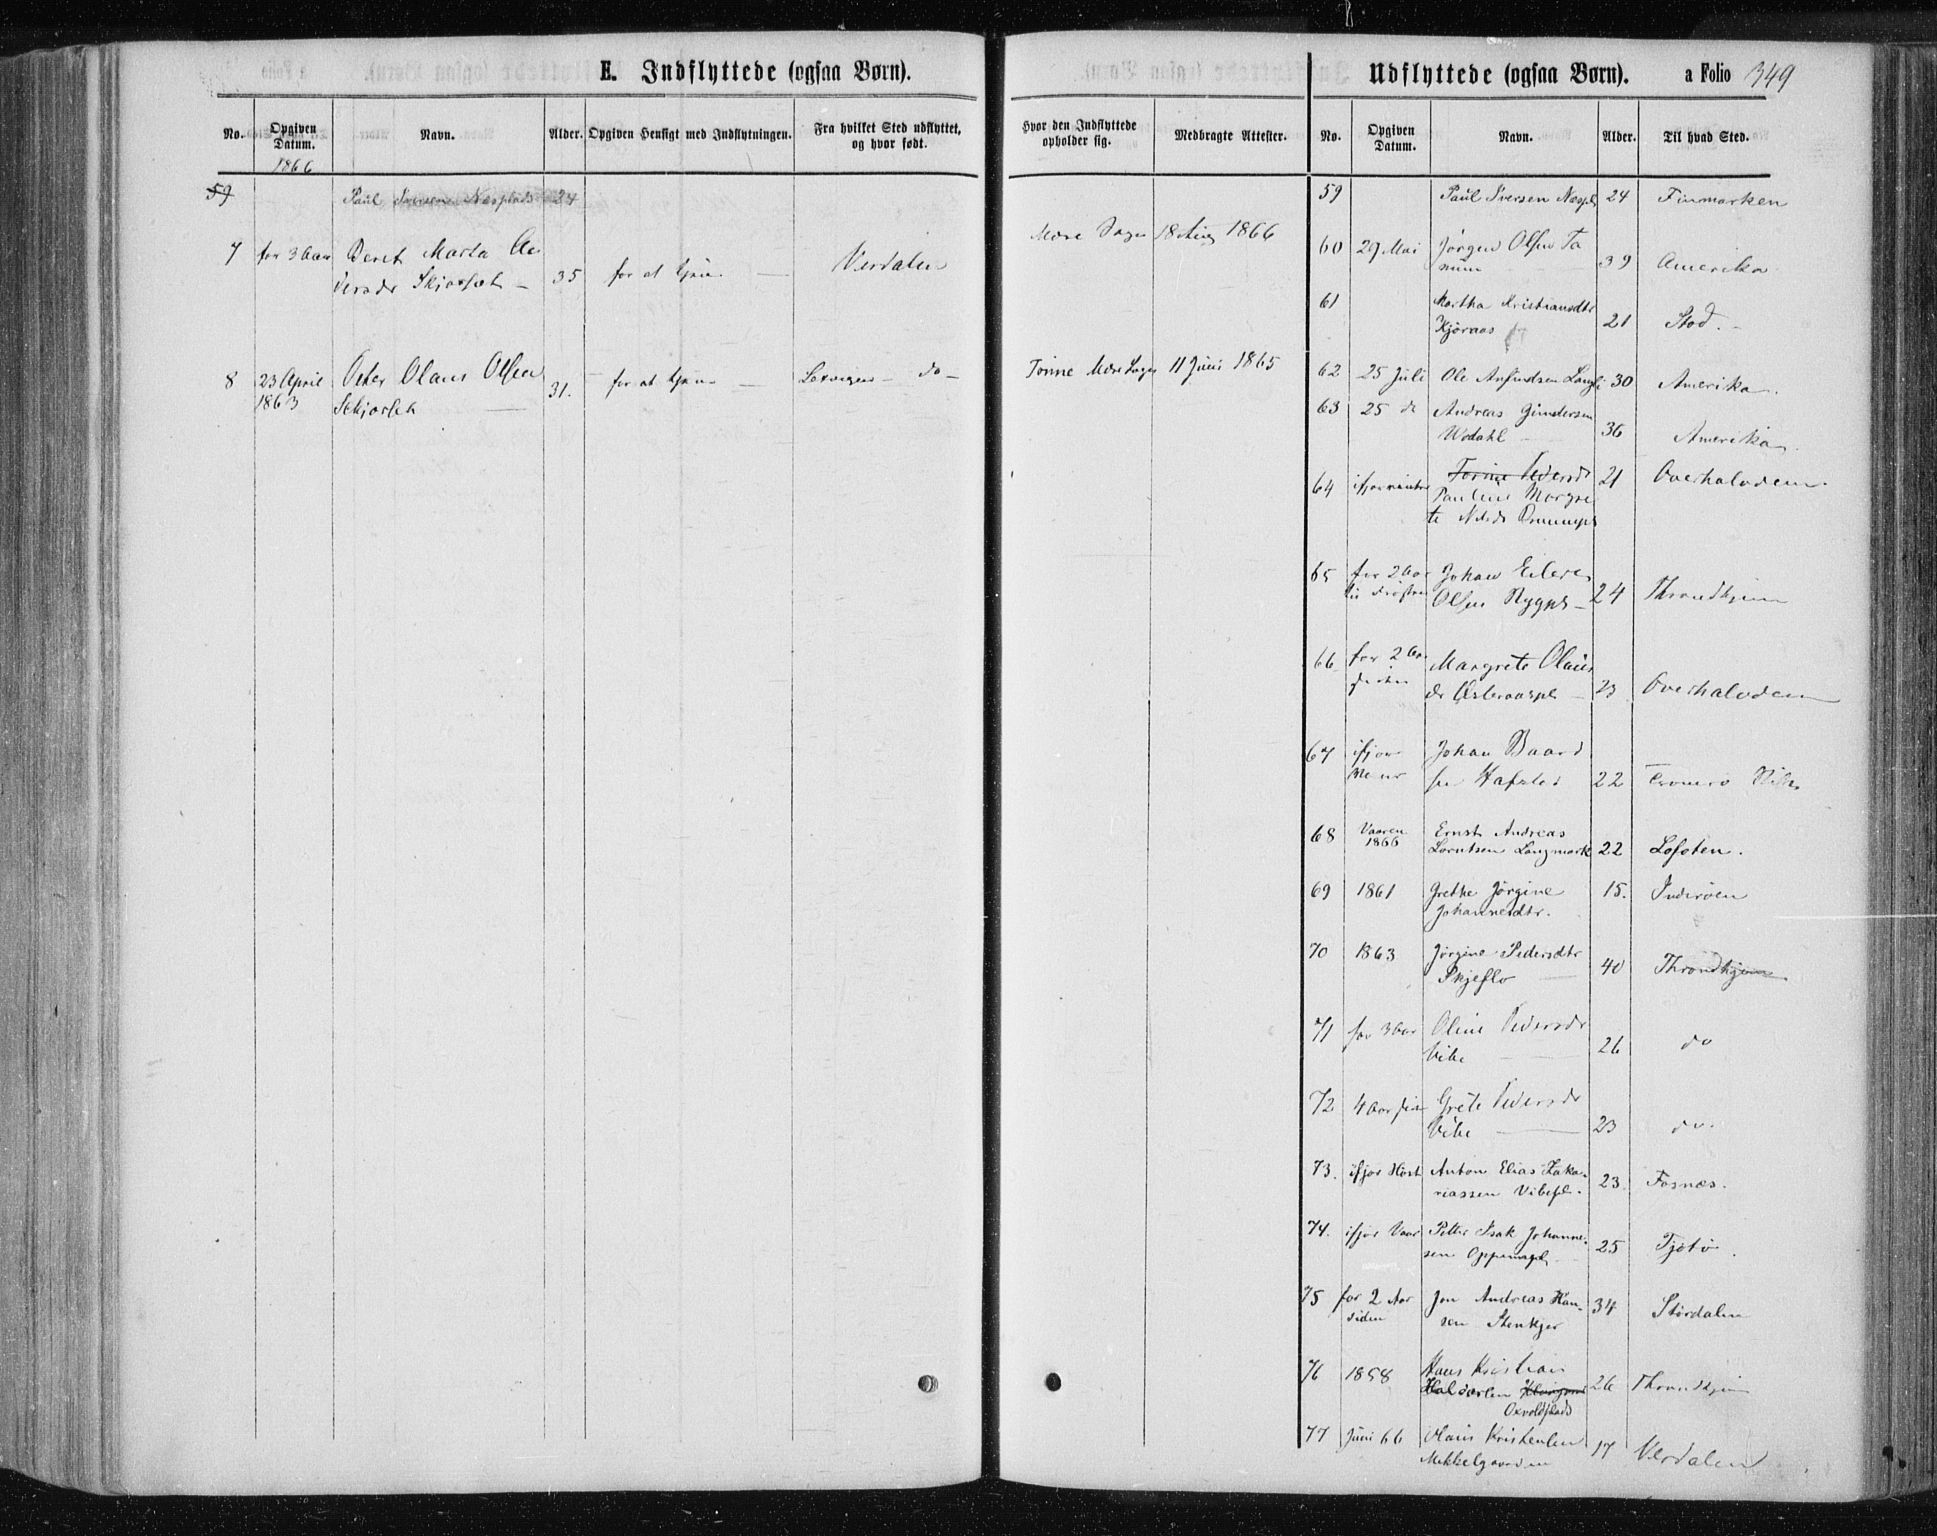 E. Indflyttede (ogsaa Børn).
No. Opgiven Datum. Navn. Alder. Opgiven Hensigt med Indflytningen. Fra hvilket Sted udflyttet, og hvor født.
1866
59 Paul Iversen Næsplads 24
7 for 3 Aar Beret Marta
Skjørset 35 for at tjene Verdalen
8 23 April Peter Olaus Olsen 31. for at tjene Lexvigen do
1863 Skjørset
Hvor den Indflyttede opholder sig. Medbragte Attester.
Mære Sogn 18 Aug 1866
Mære Sogn 11 Juni 1865
Udflyttede (ogsaa Børn). a Folio 349
No. Opgiven Datum. Navn. Alder. Til hvad Sted.
59 Paul Iversen Næspl 24 Finmarken
60 29 Mai Jørgen Olsen Ta
num 39 Amerika
61 Martha Kristiansdtr
Kjøraas 21 Stod.
62 25 Juli Ole Anfindsen Langli 30 Amerika.
63 25 do Andreas Gundersen
Wodahl 36 Amerika.
64 ifjor Pedersdr 21 Overhalvden.
Pauline Margre
te Nilsdr
65 for 2 Aar Johan Eilert
siden Olsen Rygpl 24 Throndhjem
66 for 2 Aar Margrete Olaus
siden dr Østeraaspl 23 Overhalvden
67 ifjor Johan Baard
sen Hafstad 22 Tromsø
68 Vaaren Ernst Andreas
1866 Lorntsen Langmark 22 Lofoten.
69 1861 Grethe Jørgine 15. Inderøen
Johannesdtr.
70 1863 Jørgine Pedersdtr
Skjeflo 40 Throndhjem
71 for 3 Aar Oline Pedersdr
Vibe 26 do
72 4 Aar siden Grete Pedersdr
Vibe 23 do.
73. ifjor Høst Anton Elias Zaka-
riassen Vibepl. 23. Fosnæs.
74. ifjor Vaar Petter Isak Johanne-
sen Oppemspl. 25 Tjøtø.
75 for 2 Aar Jon Andreas Han-
siden sen Stenkjer 34 Stördalen
76 1858 Hans Kristian
Haldorsen 26 Throndhjem
Oxvoldplads
77 Juni 66 Olaus Kristensen
Mikkelgaarden 17 Verdalen